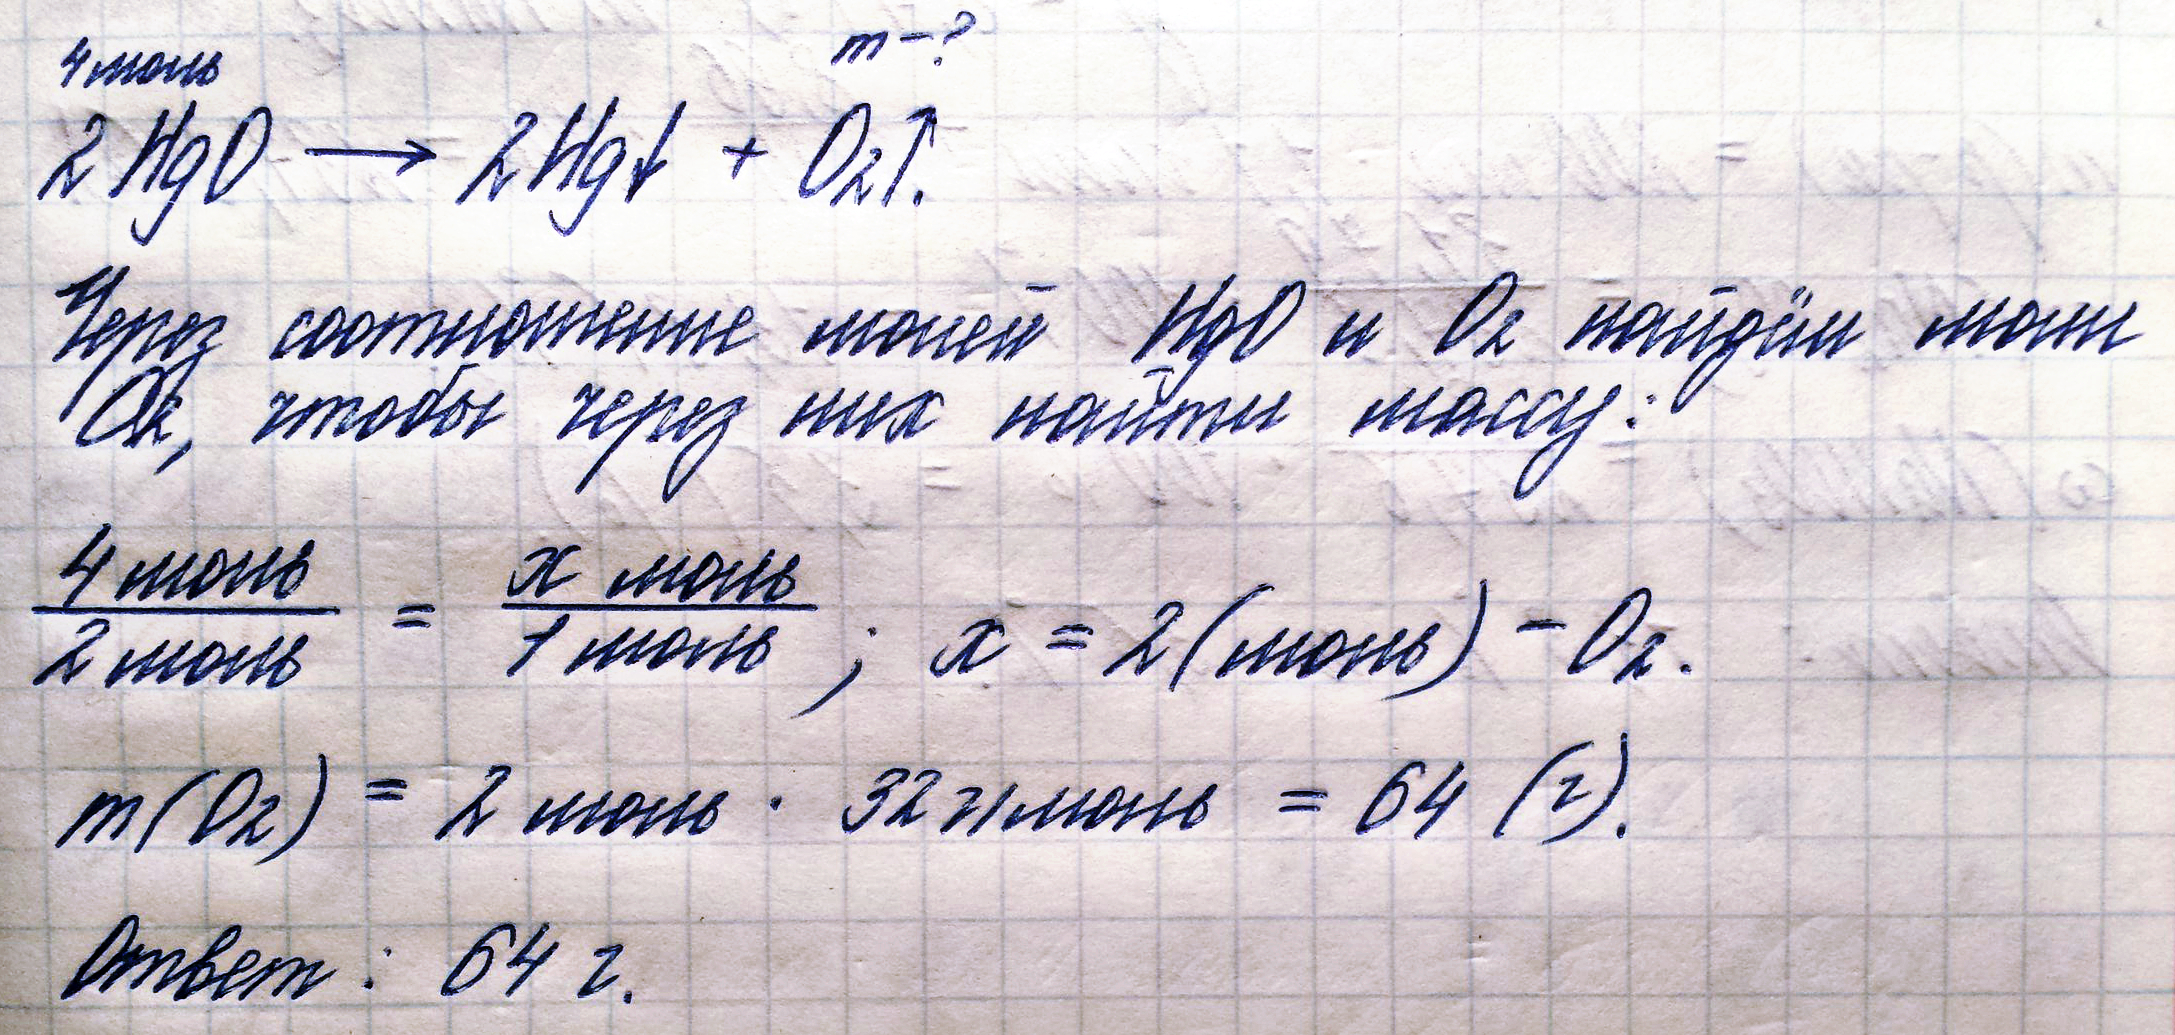 4 моль m – ?
2HgO → 2Hg↓ + O₂↑.
Через соотношение молей HgO и O₂ найдём моли
O₂, чтобы через них найти массу:
4 моль / 2 моль = x моль / 1 моль ; x = 2 (моль) – O₂.
m(O₂) = 2 моль · 32 г/моль = 64 (г).
Ответ: 64 г.